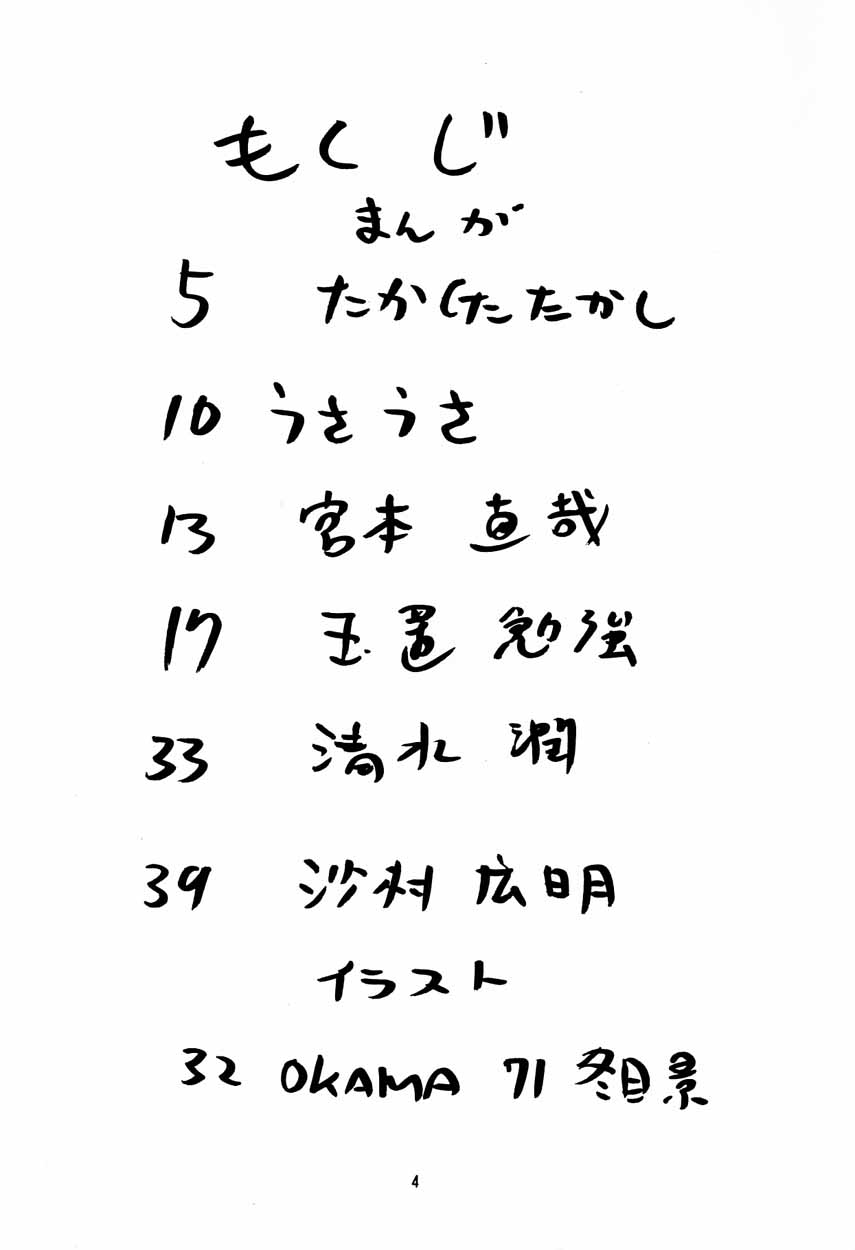 もくじ
まんが
5 たかはたたかし
10 うさうさ
13 宮本 直哉
17 玉置 勉強
33 清水 潤
39 沙村 広明
イラスト
32 OKAMA 71 冬目景
4